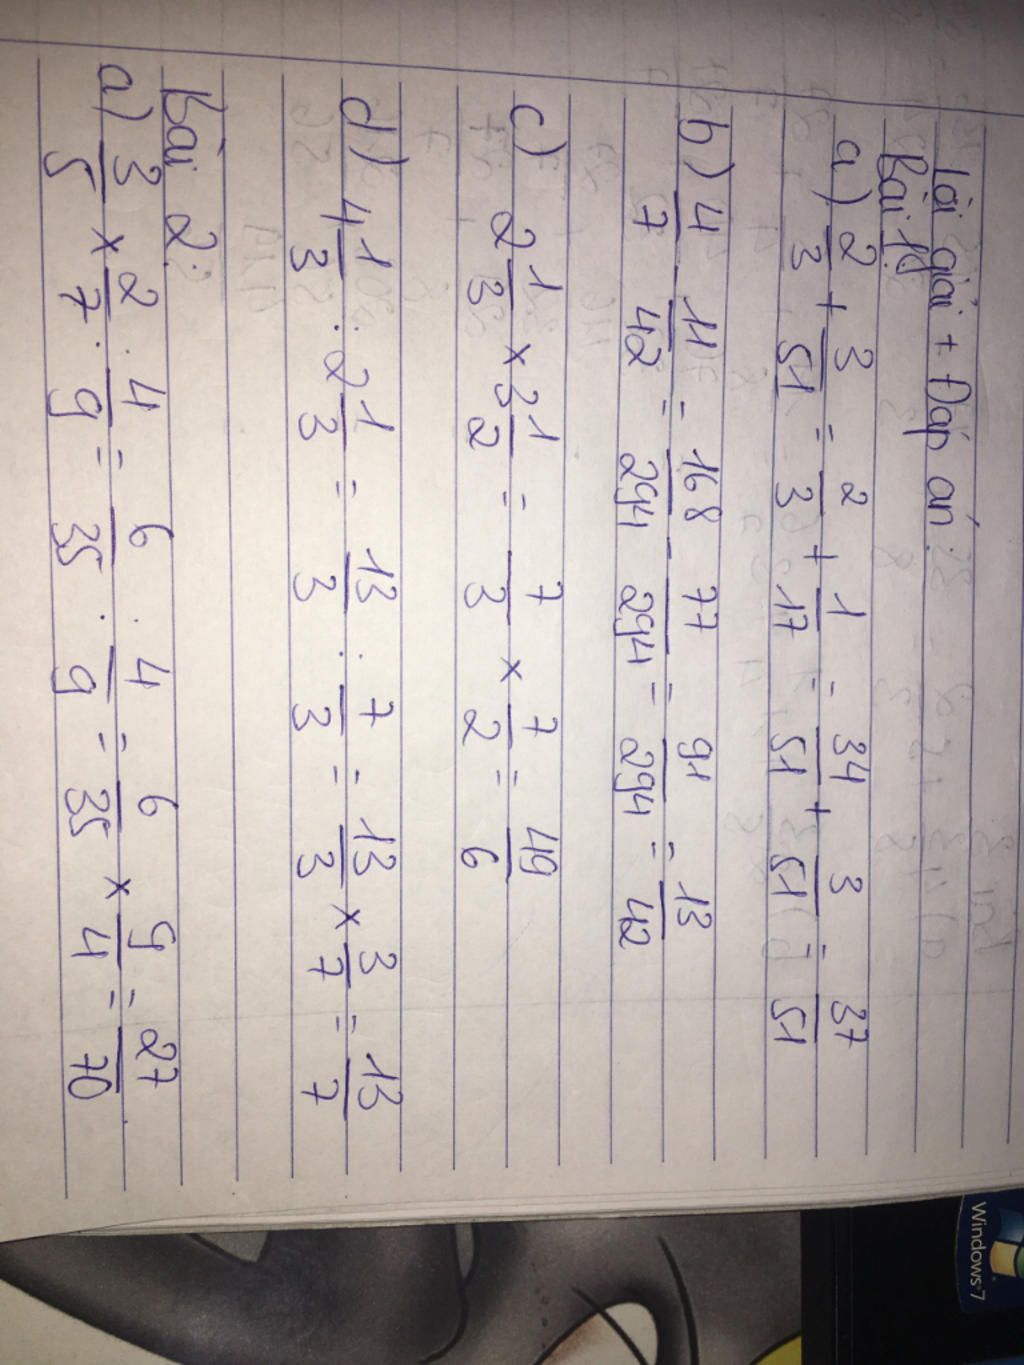 Lời giải + Đáp án:
Bài 1:
a) 2/3 + 3/51 = 2/3 + 1/17 = 34/51 + 3/51 = 37/51
b) 4/7 - 11/42 = 168/294 - 77/294 = 91/294 = 13/42
c) 2 1/3 × 3 1/2 = 7/3 × 7/2 = 49/6
d) 4 1/3 : 2 1/3 = 13/3 : 7/3 = 13/3 × 3/7 = 13/7
Bài 2:
a) 3/5 × 2/7 : 4/9 = 6/35 : 4/9 = 6/35 × 9/4 = 27/70
Windows 7